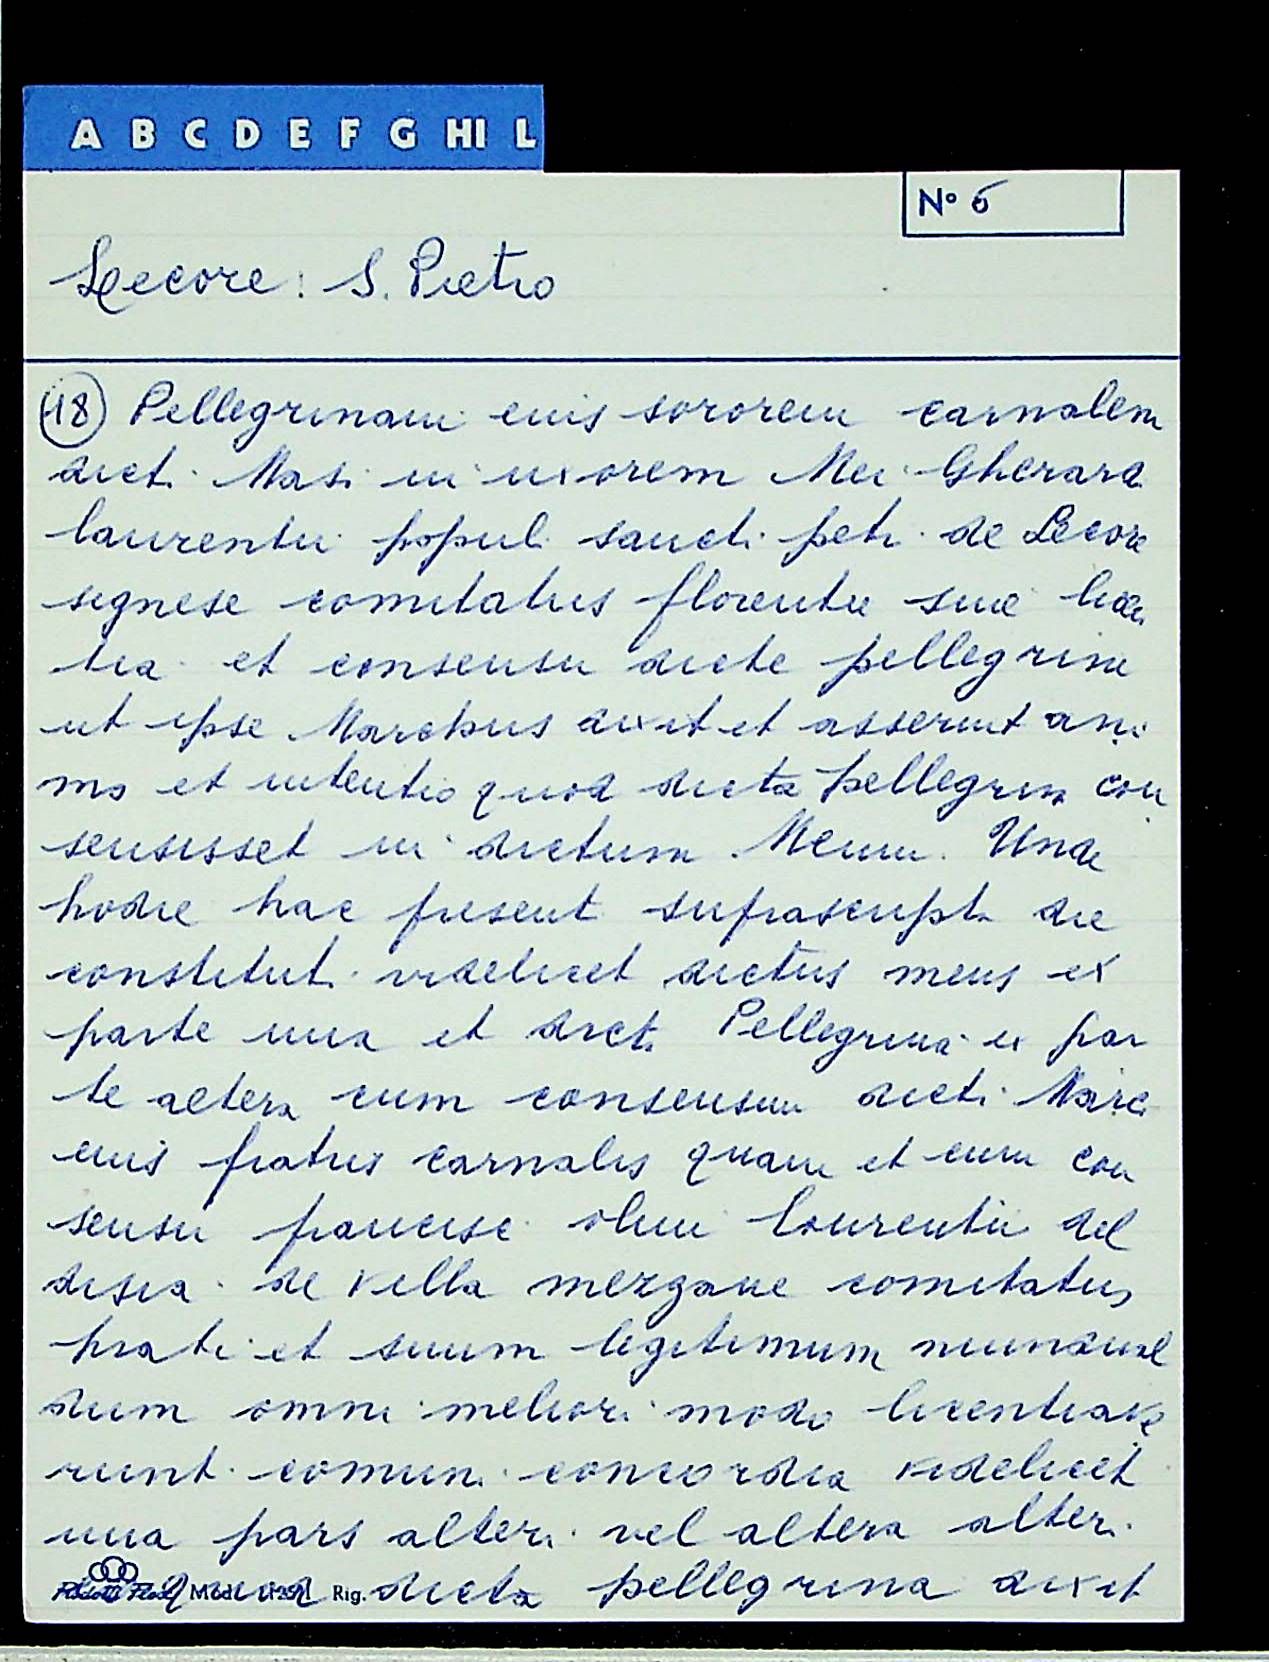 A B C D E F G HI L
Nº 6
Lecore: S. Pietro
(18) Pellegrinam eius sororem carnalem
dicti Masi in uxorem Mei Gherard
laurentii populi sancti petri de Lecore
signese comitatus florentie sine licen
tia et consensu dicte pellegrine
ut ipse Marchus dixit et asseruit ani
mo et intentio quod dicta pellegrina con
sensisset in dictum Meum. Unde
hodie hac present suprascripta die
constituti videlicet dictus meus ex
parte una et dicta Pellegrina ex par
te altera cum consensum dicti Marci
eius fratris carnalis quam et cum con
sensu francisc olim laurentii del
de villa mezzane comitatus
prati et suum legitimum mundual
dum omni meliori modo licentiave
runt comuni concordia videlicet
una pars alteri vel altera alteri
quod dicta pellegrina dixit
Mod. Rig.